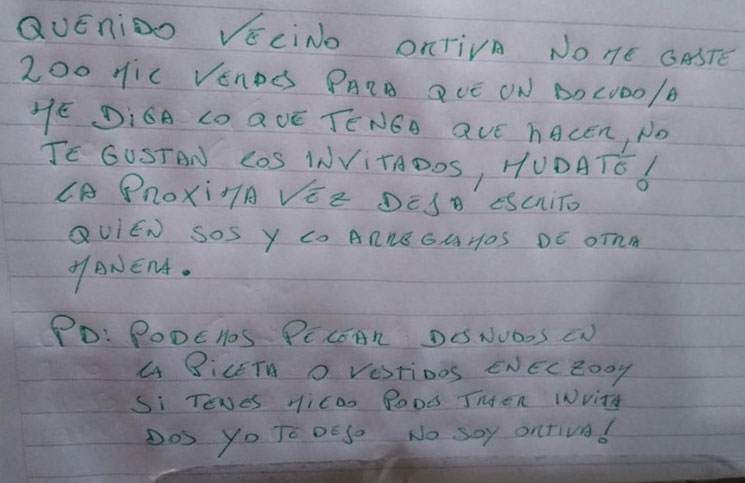 QUERIDO VECINO ORTIVA NO ME GASTE
200 MIL VERDES PARA QUE UN BOLUDO/A
ME DIGA LO QUE TENGA QUE HACER, NO
TE GUSTAN LOS INVITADOS, MUDATE!
LA PROXIMA VEZ DEJA ESCRITO
QUIEN SOS Y LO ARREGLAMOS DE OTRA
MANERA.
PD: PODEMOS PELEAR DESNUDOS EN
LA PILETA O VESTIDOS EN EL ZOOM
SI TENES MIEDO PODES TRAER INVITA
DOS YO TE DEJO NO SOY ORTIVA!